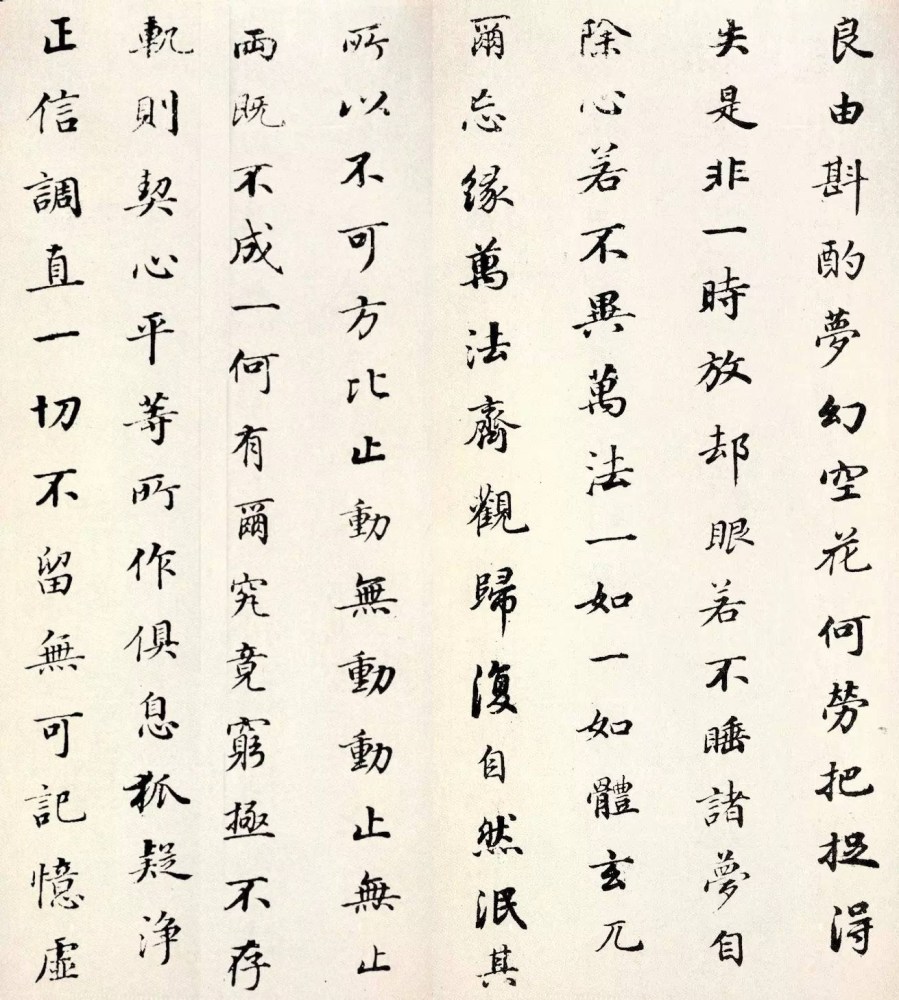 良由斟酌夢幻空花何勞把捉得
失是非一時放却眼若不睡諸夢自
除心若不異萬法一如一如體玄兀
爾忘緣萬法齊觀歸復自然泯其
所以不可方比止動無動動止無止
兩既不成一何有爾究竟窮極不存
軌則契心平等所作俱息狐疑淨
正信調直一切不留無可記憶虛